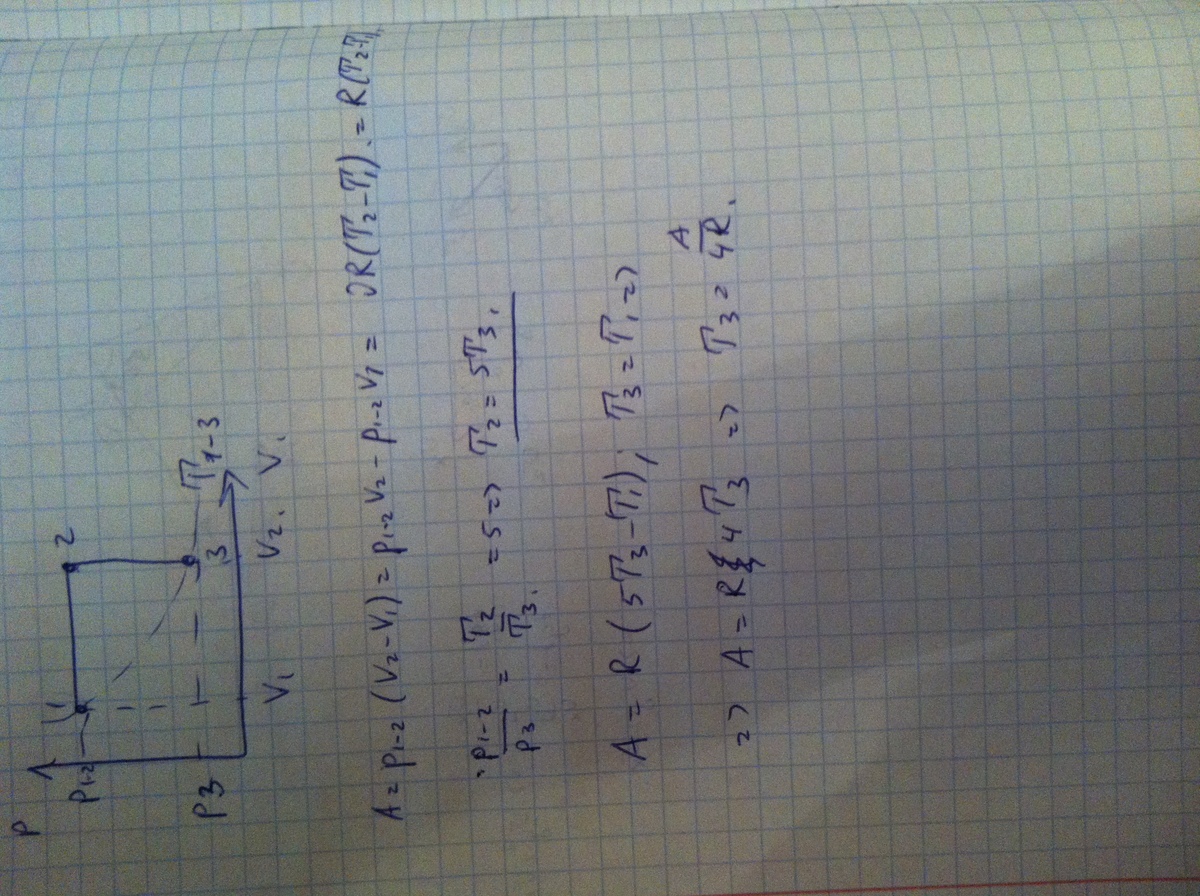 P
P₁₋₂ 1 2
P3 3 T₁₋₃
V₁ V₂. V.
A = P₁₋₂ (V₂ - V₁) = P₁₋₂ V₂ - P₁₋₂ V₁ = νR(T₂ - T₁). = R(T₂ - T₁).
P₁₋₂/P₃ = T₂/T₃. = 5 => T₂ = 5T₃.
A = R (5T₃ - T₁); T₃ = T₁ =>
=> A = R 4T₃ => T₃ = A/4R.